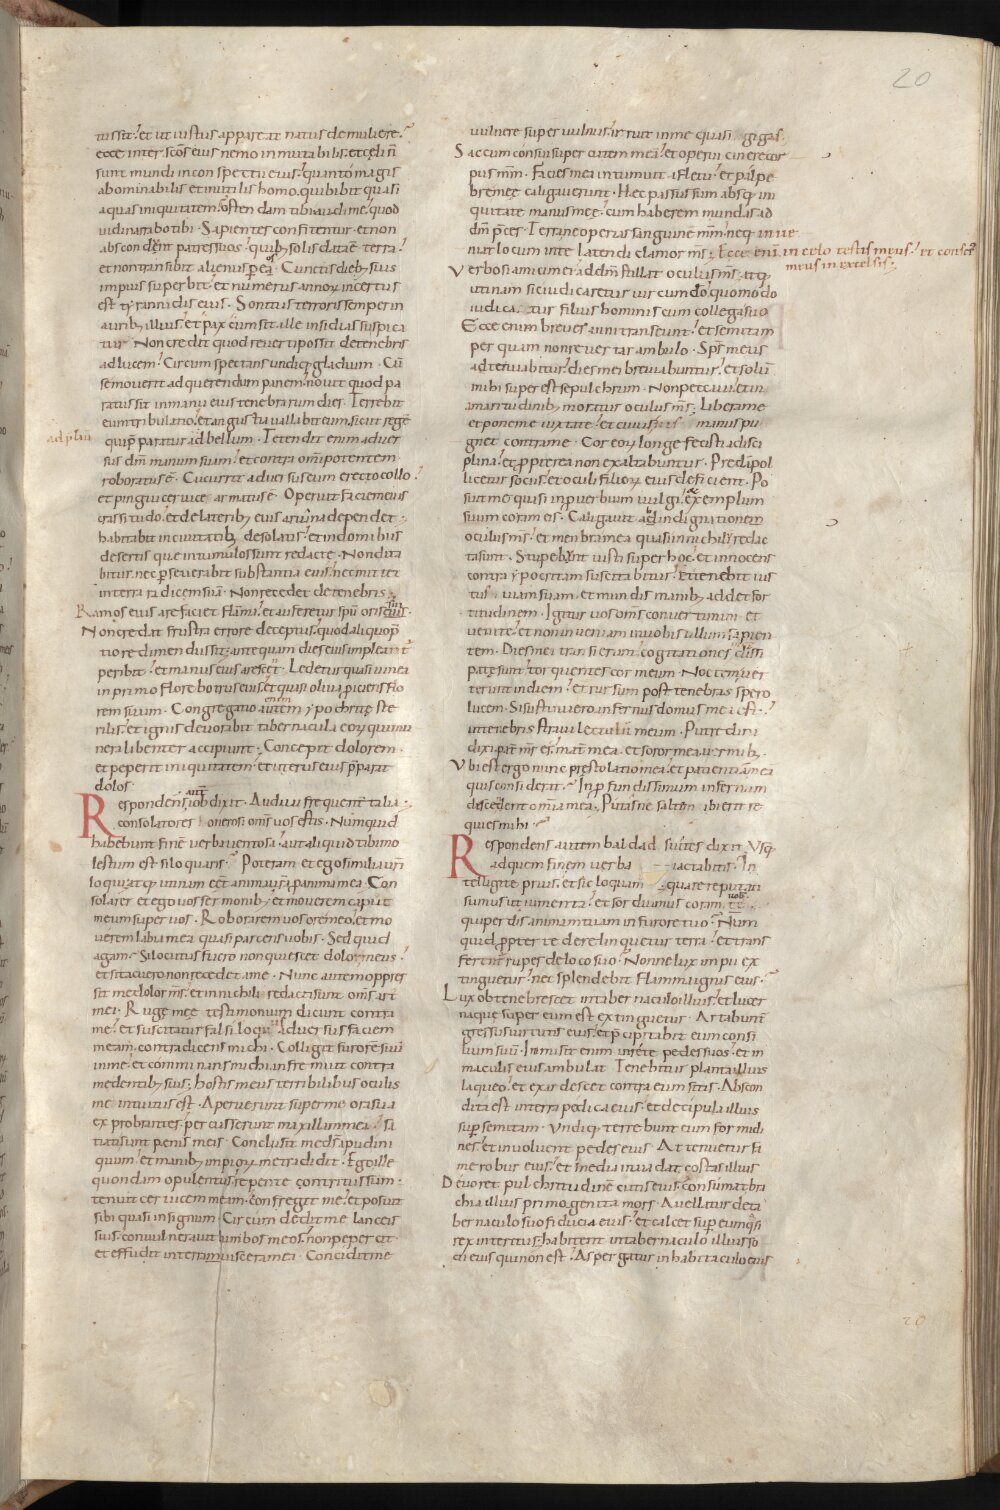 20
tus sit? et ut iustus appareat natus de muliere?
ecce inter scōs eius nemo inmutabilis. et cęli ñ
sunt mundi in conspectu eius. quanto magis
abominabilis et inutilis homo. qui bibit quasi
aquas iniquitatem. Ostendam tibi audi me. quod
uidi narrabo tibi. Sapientes confitentur. et non
abscondunt patres suos. quibȝ solis data ē terra.
et non transibit alienus per eos. Cunctis diebȝ suis
impius superbit. et numerus annorum incertus
est tyrannidis eius. Sonitus terroris semper in
auribȝ illius. et pax cum sit. ille insidias suspica
tur. Non credit quod reuerti possit de tenebris
ad lucem. Circumspectans undiq; gladium. Cū
se mouerit ad querendum panem. nouit quod pa
ratus sit in manu eius tenebrarum dies. Terrebit
eum tribulatio. et angustia uallabit eum. sicut regē
qui pręparatur ad bellum. Tetendit enim aduer
sus dm̄ manum suam. et contra omnipotentem
roboratus ē. Cucurrit aduersus eum erecto collo.
et pingui ceruice armatus ē. Operuit faciem eius
crassitudo. et de lateribȝ eius aruina dependet.
habitabit in ciuitatibȝ desolatis. et in domibus
desertis que in tumulos sunt redacte. Non dita
bitur. nec perseuerabit substantia eius. nec mittet
in terra radicem suā. Non recedet de tenebris.
Ramos eius arefaciet flāma. et auferetur spū oris sui
Non credat frustra errore deceptus. quod aliquo p̄
tio redimendus sit. antequam dies eius impleant
peribit. et manus eius arescet. Ledetur quasi uinea
in primo flore botrus eius. et quasi oliua proiciens flo
rem suum. Congregatio enim ypochritę ste
rilis. et ignis deuorabit tabernacula eorum qui mu
nera libenter accipiunt. Concepit dolorem.
et peperit iniquitatem. et uterus eius pręparat
dolos.
Respondens aut iob dixit. Audiui frequenter talia.
consolatores onerosi omīs uos estis. Numquid
habebunt finē uerba uentosa. aut aliquid tibi mo
lestum est si loquaris. Poteram et ego similia uri
loqui. atq; utinam eēt anima urā p anima mea. Con
solarer et ego uos sermonibȝ. et mouerem caput
meum super uos. Roborarem uos ore meo. et mo
uerem labia mea quasi parcens uobis. Sed quid
agam. Si locutus fuero non quiescet dolor meus.
et si tacuero non recedet a me. Nunc autem oppres
sit me dolor ms. et in nichilū redacti sunt om̄s arī
mei. Rugę meę testimonium dicunt contra
me. et suscitatur falsiloquus aduersus faciem
meam. contradicens michi. Collegit furorē suū
in me. et comminans michi. infremuit contra
me dentibȝ suis. hostis meus terribilibus oculis
me intuitus est. Aperuerunt super me ora sua
exprobrantes. percusserunt maxillam meā. sa
tiati sunt penis meis. Conclusit me dš apud ini
quum. et manibȝ impiorum me tradidit. Ego ille
quondam opulentus. repente contritus sum.
tenuit ceruicem meam. confregit me. et posuit
sibi quasi in signum. Circumdedit me lanceis
suis. conuulnerauit lumbos meos. non pepercit.
et effudit in terram uiscera mea. Concidit me
uulnere super uulnus. irruit in me quasi gigas.
Saccum consui super cutem meā. et operui cinere cor
pus mm̄. Facies mea intumuit a fletu. et palpe
bre meę caligauerunt. Hec passus sum absq; in
iquitate manus meę. cum haberem mundas ad
dm̄ pces. Terra ne operias sanguinē mm̄. neq; inue
niat locum in te latendi clamor ms. Ecce enī in celo testis meus. et consci
us meus in excelsis.
Verbosi amici mei. ad dm̄ stillat oculus ms. atq;
utinam sic iudicaretur uir cum dō. quomodo
iudicatur filius hominis cum collega suo.
Ecce enim breues anni transeunt. et semitam
per quam non reuertar ambulo. Sps meus
adtenuabitur. dies mei breuiabuntur. et solū
mihi superest sepulchrum. Non peccaui. et in
amaritudinibȝ moratur oculus ms. Libera me
et pone me iuxta te. et cuiusuis manus pu
gnet contra me. Cor eorum longe fecisti a disci
plina. et propterea non exaltabuntur. Predam pol
licetur sociis. et oculi filiorum eius deficient. Po
suit me quasi in prouerbium uulgi. et exemplum
sum coram eis. Caligauit ab indignatione
oculus ms. et membra mea quasi in nichilum redac
ta sunt. Stupebunt iusti super hoc. et innocens
contra ypocritam suscitabitur. Et tenebit ius
tus uiam suam. et mundis manibȝ addet for
titudinem. Igitur uos om̄s conuertimini et
uenite. et non inueniam in uobis ullum sapien
tem. Dies mei transierunt. cogitationes dissi
pate sunt. torquentes cor meum. Noctem uer
terunt in diem. et rursum post tenebras spero
lucem. Si sustinuero infernus domus mea est.
in tenebris straui lectulū meum. Putredini
dixi. pat ms es. mat mea. et soror mea uermibȝ.
Vbi est ergo nunc pręstolatio mea. et patientiā meā
quis considerat. In profundissimum infernum
descendent omnia mea. Putasne saltem ibi erit re
quies mihi.
Respondens autem baldad suites dixit. Vsq;
ad quem finem uerba iactabitis. In
telligite prius. et sic loquamur. quare reputati
sumus ut iumenta. et sorduimus coram uob.
qui perdis animam tuam in furore tuo. Num
quid propter te derelinquetur terra. et trans
ferent rupes de loco suo. Nonne lux impii ex
tinguetur. nec splendebit flamma ignis eius.
Lux obtenebrescet in tabernaculo illius. et lucer
na que super eum est extinguetur. Artabuntur
gressus uirtutis eius. et pręcipitabit eum consi
lium suū. Inmisit enim in rete pedes suos. et in
maculis eius ambulat. Tenebitur planta illius
laqueo. et exardescet contra eum sitis. Abscon
dita est in terra pedica eius. et decipula illius
super semitam. Vndiq; terrebunt eum formidi
nes. et inuoluent pedes eius. Attenuetur fa
me robur eius. et inedia inuadat costas illius
Deuoret pulchritudinē cutis eius. consumat bra
chia illius primogenita mors. Auellatur de ta
bernaculo suo fiducia eius. et calcet super eum q̄si
rex interitus. habitent in tabernaculo illius so
cii eius qui non est. Aspergatur in habitaculo eius
20